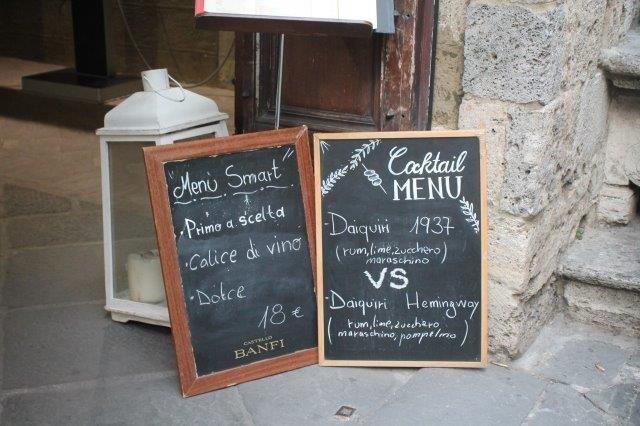 "Menù Smart"
• Primo a scelta
• Calice di vino
• Dolce
18 €
CASTELLO
BANFI
Cocktail
MENU
- Daiquiri 1937
(rum, lime, zucchero
maraschino)
VS
- Daiquiri Hemingway
(rum, lime, zucchero,
maraschino, pompelmo)